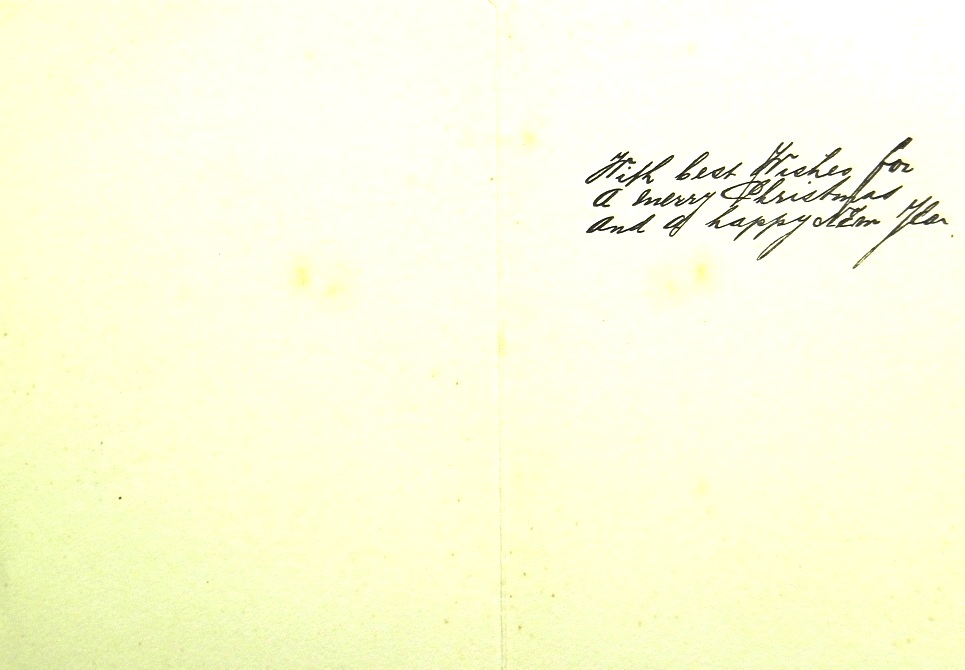 With best Wishes for
a merry Christmas
and a happy New Year.